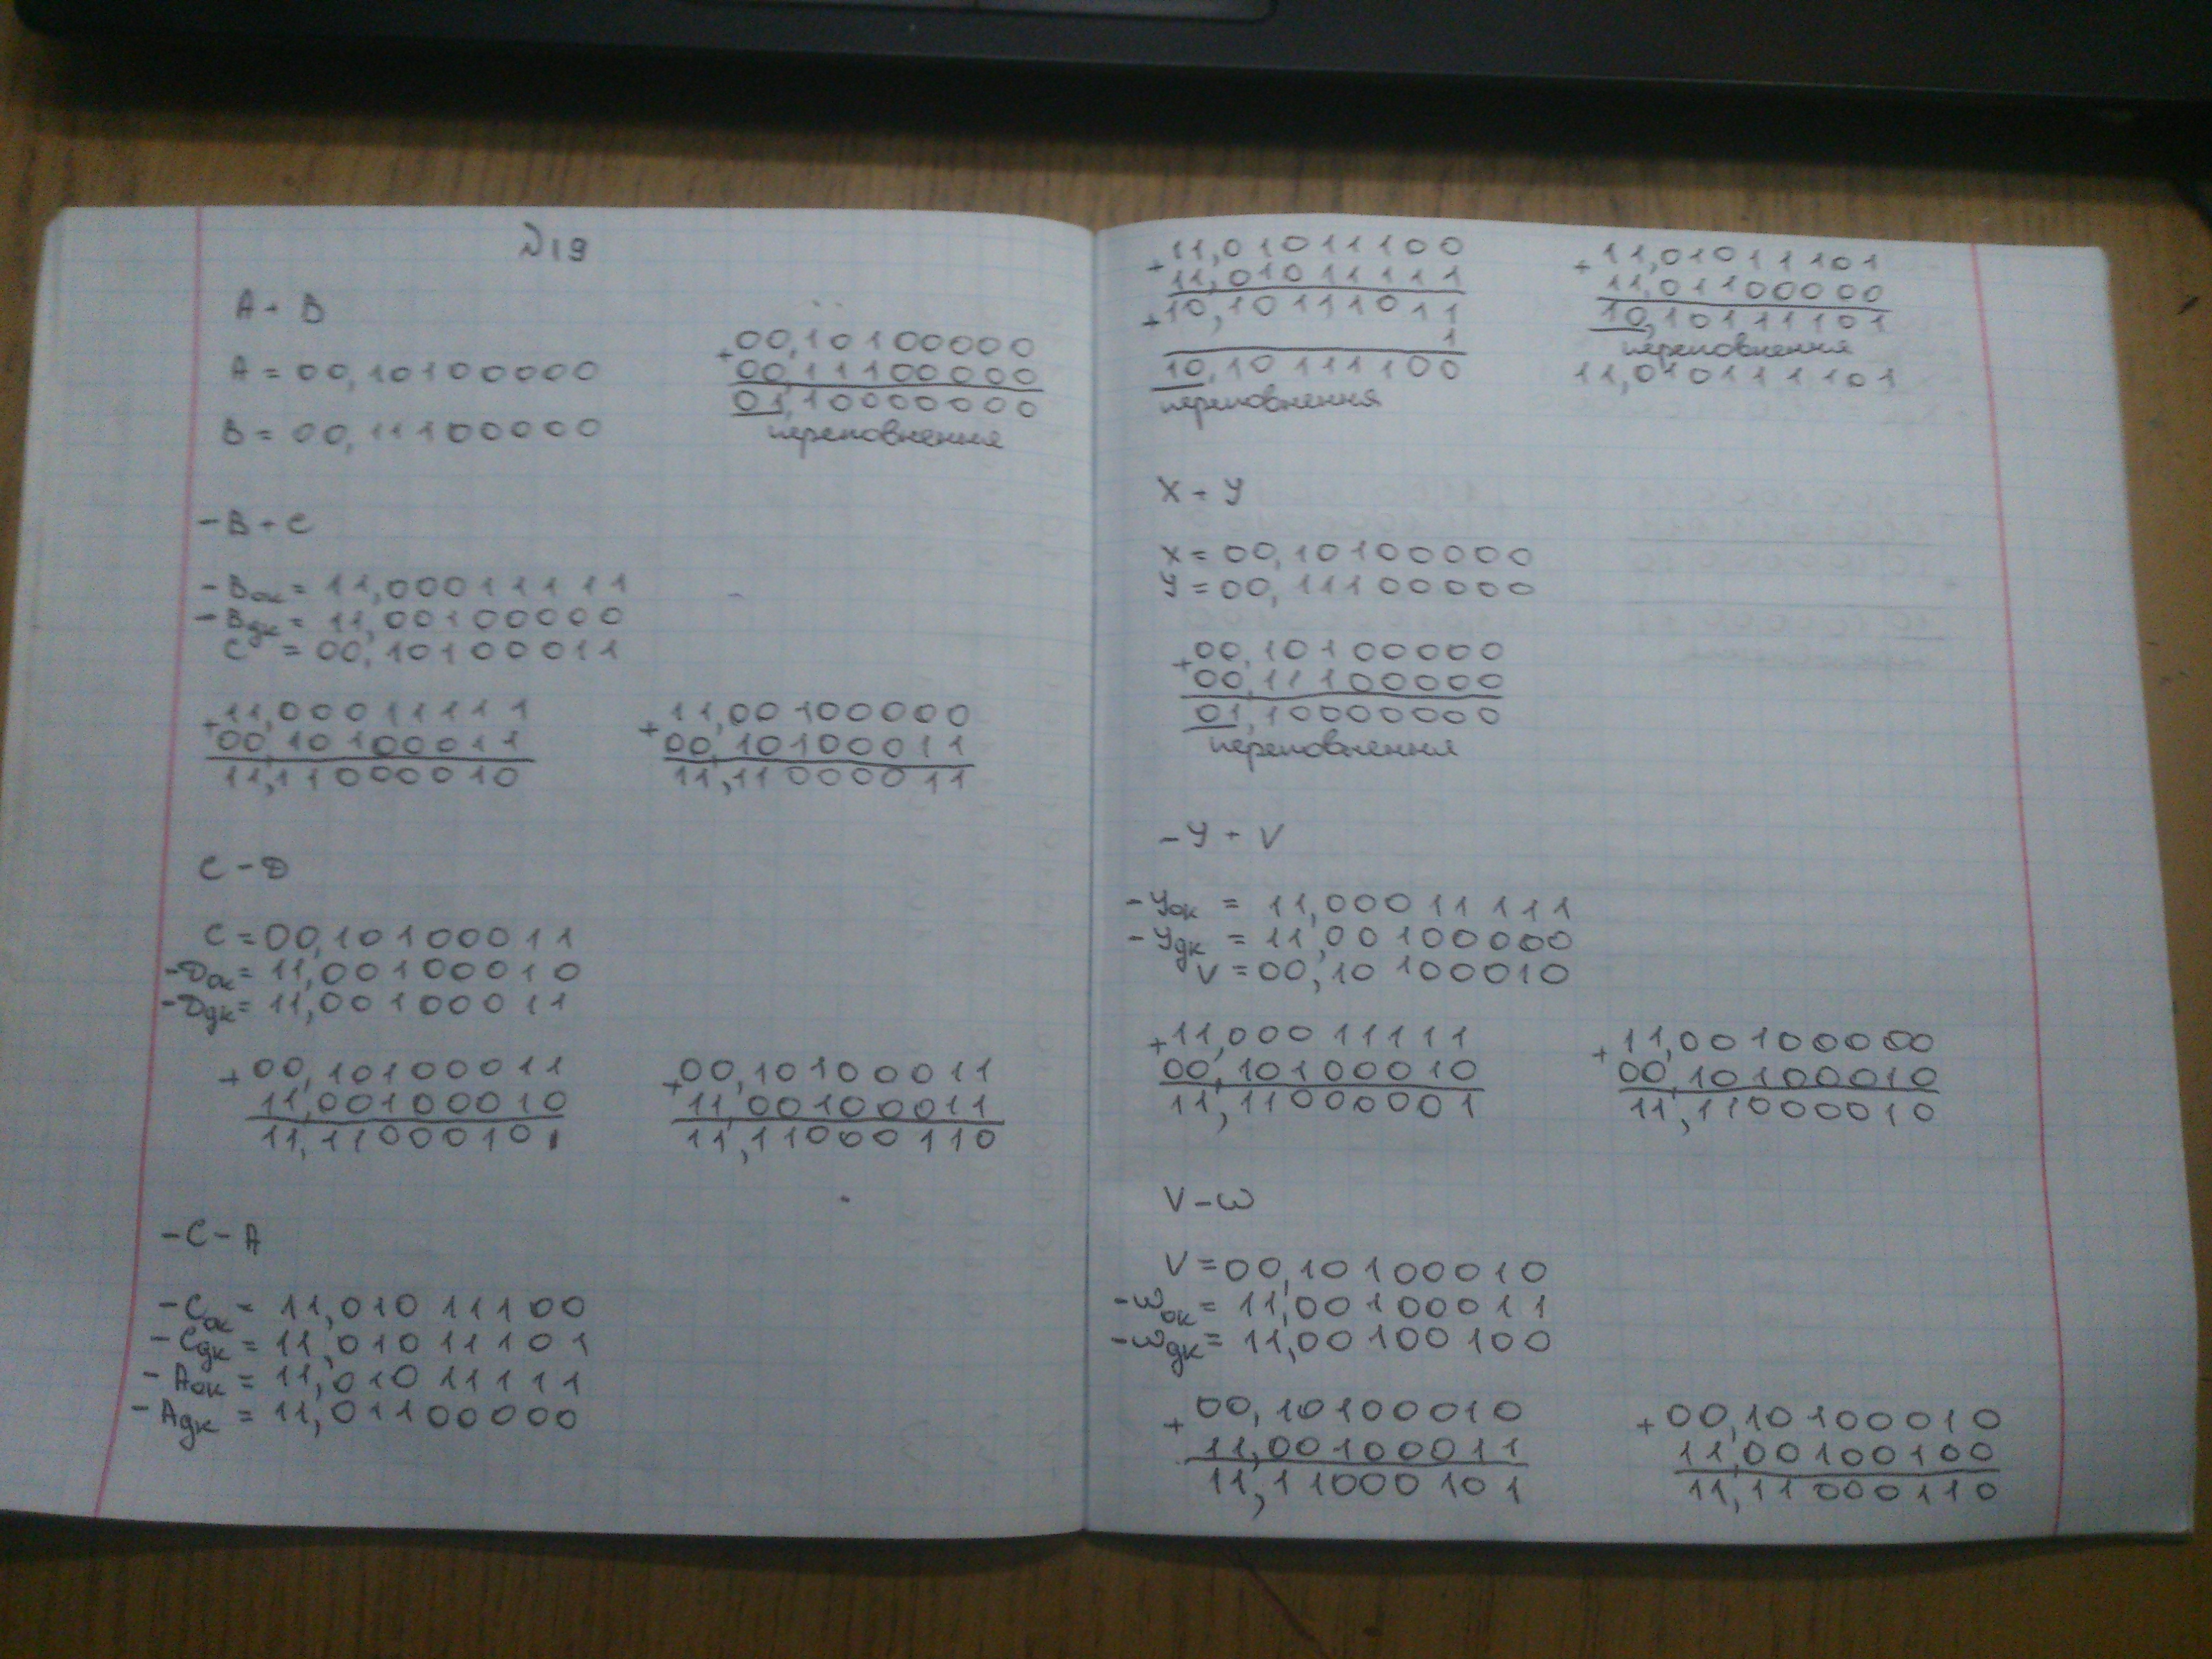 №19
A + B
A = 00,10100000
B = 00,11100000
+ 00,10100000
00,11100000
01,10000000
переповнення
-B + C
-Bок = 11,00011111
-Bдк = 11,00100000
C = 00,10100011
+ 11,00011111
00,10100011
11,11000010
+ 11,00100000
00,10100011
11,11000011
C - D
C = 00,10100011
-Dок = 11,00100010
-Dдк = 11,00100011
+ 00,10100011
11,00100010
11,11000101
+ 00,10100011
11,00100011
11,11000110
-C - A
-Cок = 11,01011100
-Cдк = 11,01011101
-Aок = 11,01011111
-Aдк = 11,01100000
+ 11,01011100
11,01011111
+ 10,10111011
1
10,10111100
переповнення
+ 11,01011101
11,01100000
10,10111101
переповнення
11,010111101
X + Y
X = 00,10100000
Y = 00,11100000
+ 00,10100000
00,11100000
01,10000000
переповнення
-Y + V
-Yок = 11,00011111
-Yдк = 11,00100000
V = 00,10100010
+ 11,00011111
00,10100010
11,11000001
+ 11,00100000
00,10100010
11,11000010
V - W
V = 00,10100010
-Wок = 11,00100011
-Wдк = 11,00100100
+ 00,10100010
11,00100011
11,11000101
+ 00,10100010
11,00100100
11,11000110